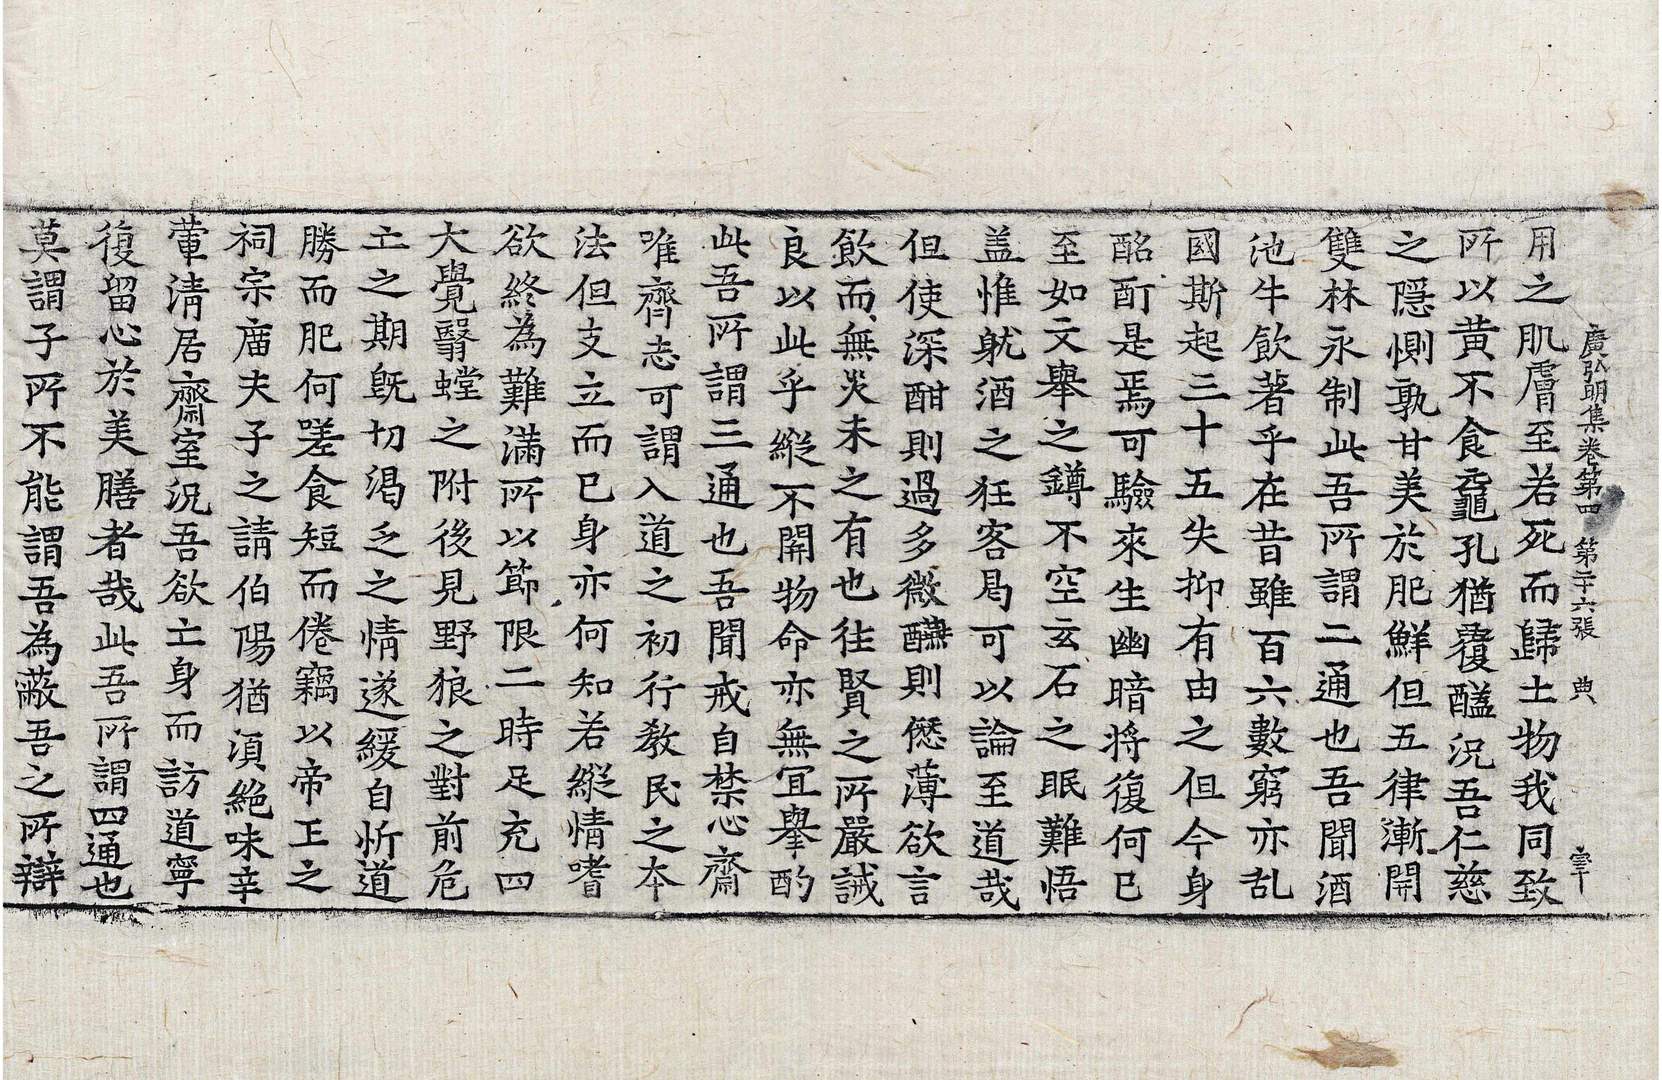 廣弘明集卷第四 第二十六張 典
用之肌膚至若死而歸土物我同致
所以黃不食龜孔猶覆醢況吾仁慈
之隱惻孰甘美於肥鮮但五律漸開
雙林永制此吾所謂二通也吾聞酒
池牛飲著乎在昔雖百六數窮亦乱
國斯起三十五失抑有由之但今身
酩酊是焉可驗來生幽暗將復何已
至如文舉之鐏不空玄石之眠難悟
盖惟躭酒之狂客局可以論至道哉
但使深酣則過多微醼則僽薄欲言
飲而無灾未之有也往賢之所嚴誡
良以此乎縱不開物命亦無宜舉酌
此吾所謂三通也吾聞戒自禁心齋
唯齊志可謂入道之初行教民之本
法但支立而已身亦何知若縱情嗜
欲終為難滿所以節限二時足充四
大覺翳螳之附後見野狼之對前危
士之期旣切渴乏之情遂緩自忻道
勝而肥何嗟食短而倦竊以帝王之
祠宗庙夫子之請伯陽猶湏絕味辛
葷清居齋室況吾欲亡身而訪道寧
復留心於美膳者哉此吾所謂四通也
莫謂子所不能謂吾為蔽吾之所辯